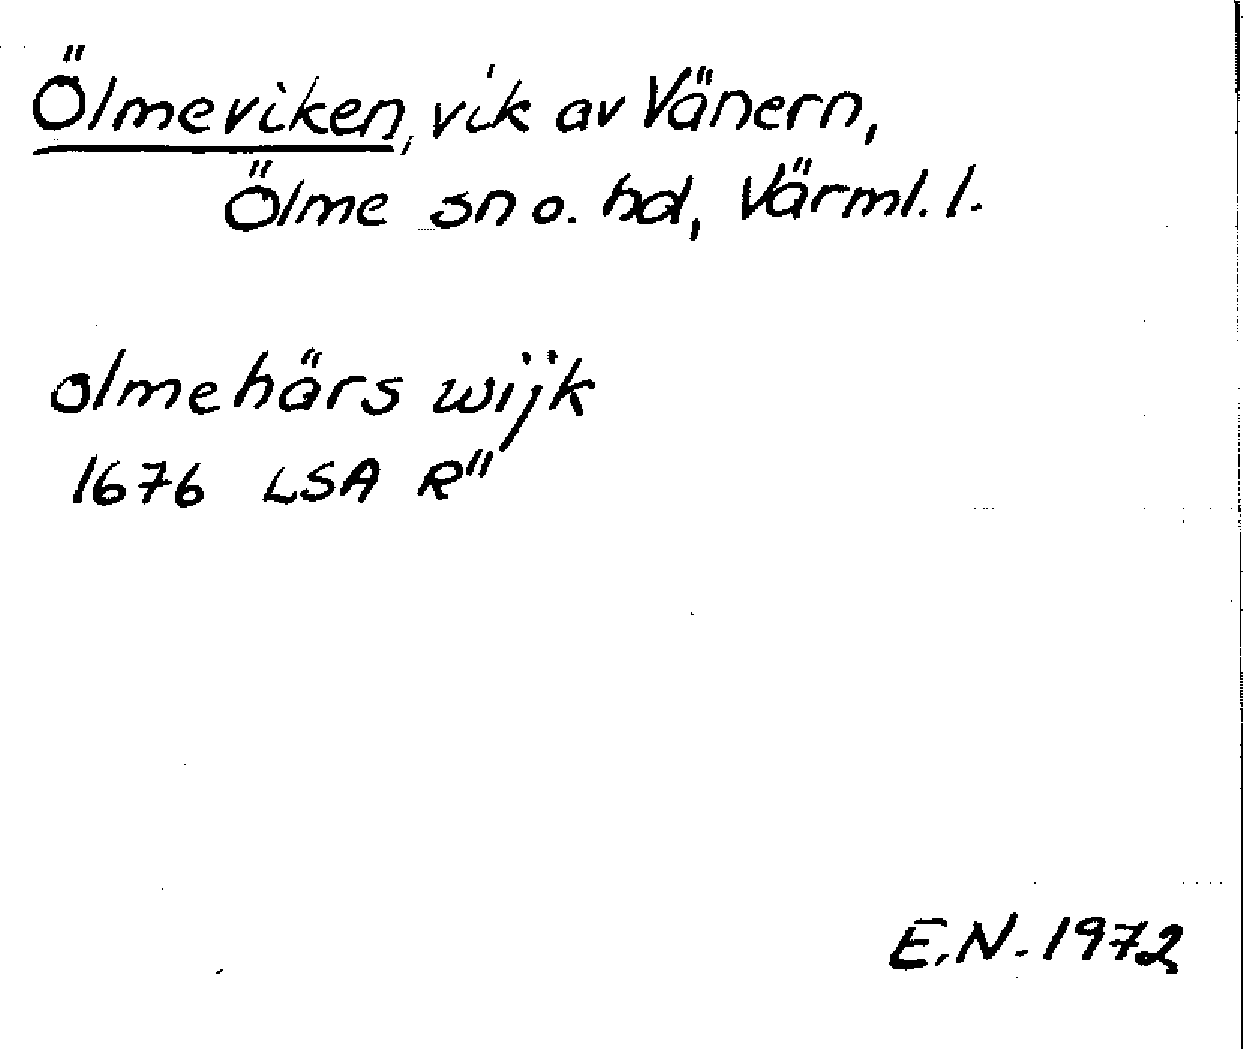 Ölmeviken, vik av Vänern,
Ölme sn o. hd, Värml. l.
olmehärs wijk
1676 LSA R"
E.N. 1972